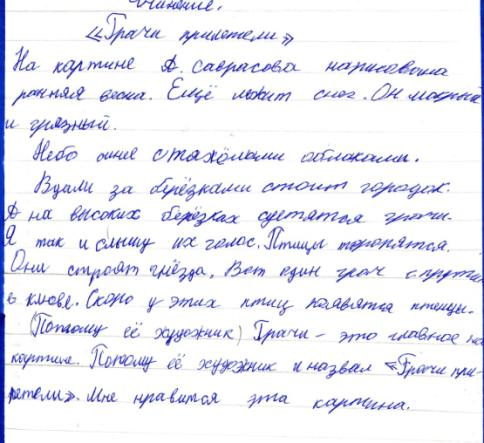 чинение.
«Грачи прилетели»
На картине А. Саврасова нарисована
ранняя весна. Ещё лежит снег. Он мокрый
и грязный.
Небо синее с тяжёлыми облаками.
Вдали за берёзками стоит городок.
А на высоких берёзках суетятся грачи.
Я так и слышу их голос. Птицы торопятся.
Они строят гнёзда. Вот один грач с прутик
в клюве. Скоро у этих птиц появятся птенцы.
(Потому её художник) Грачи – это главное на
картине. Потому её художник и назвал «Грачи при-
летели». Мне нравится эта картина.